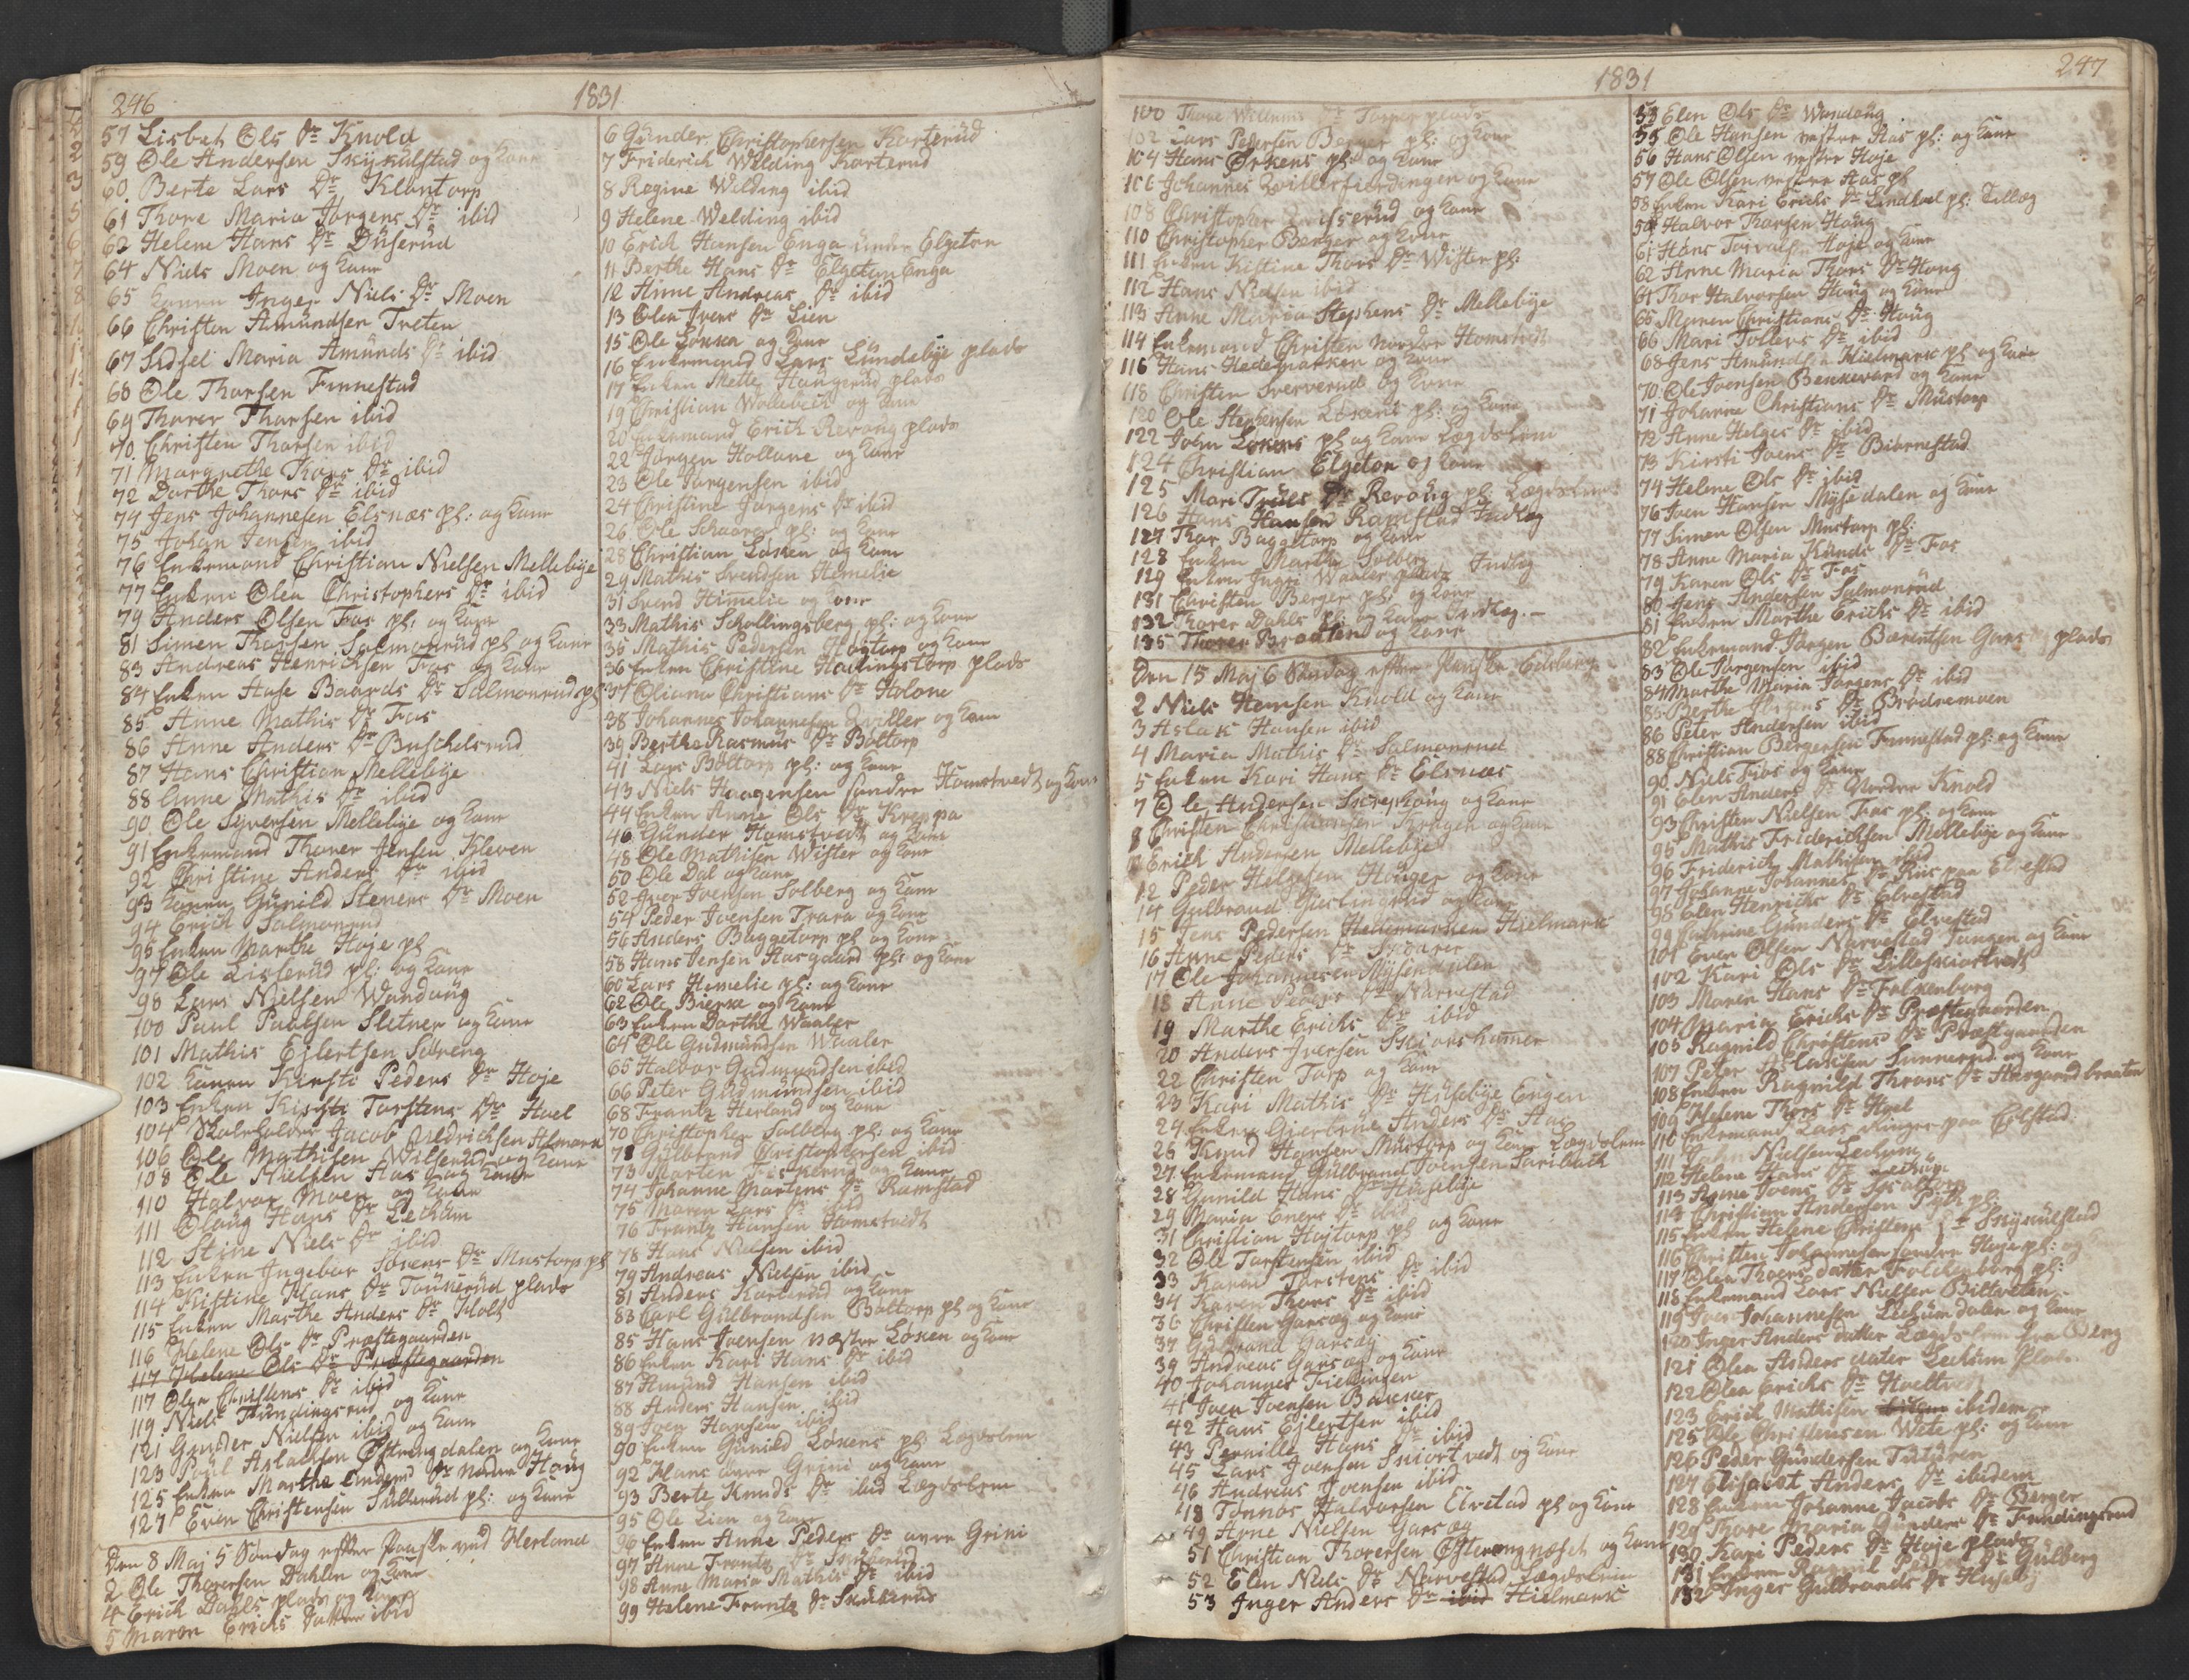 246
1831
57 Lisbet Ols Dr Knold
59 Ole Andersen Skykulstad og Kone
60. Berte Lars Dr Klantorp
61 Thore Maria Jørgens Dr ibid
62 Helene Hans Dr Duserud
64 Niels Moen og Kone
65 Konen Inger Niels Dr Moen
66 Christen Amundsen Treten
67 Sidsel Maria Amunds Dr ibid
68 Ole Thorsen Finnestad
69 Thorer Thorsen ibid
70. Christen Thorsen ibid
71 Margrethe Thors Dr ibid
72 Dorthe Thors Dr ibid
74 Jens Johannesen Elsnæs pl: og Kone
75 Johan Jensen ibid
76 Enkemand Christian Nielsen Mellebye
77 Enken Olea Christophers Dr ibid
79 Anders Olsen Fos pl: og Kone
81 Simen Thorsen Salmonrud pl og Kone
83 Andreas Henrichsen Fos og Kone
84 Enken Aase Baards Dr Salmonrud pl
85 Anne Mathis Dr Fos
86 Anne Anders Dr Buschelsrud
87 Hans Christian Mellebye
88 Anne Mathis Dr ibid
90. Ole Syversen Mellebye og Kone
91 Enkemand Thorer Jensen Kleven
92 Christine Anders Dr ibid
93 Konen Gunild Steners Dr Moen
94 Erich Salmonrud
95 Enken Marthe Høje pl
97 Ole Lisserud pl: og Kone
98 Lars Nielsen Wandung
100 Paul Paulsen Sletner og Kone
101 Mathis Ejlertsen Søreng
102 Konen Kirsti Peders Dr Høje
103 Enken Kirsti Torstens Dr Hoel
104 Skoleholder Jacob Didrichsen
106 Ole Mathisen Wilserud og Kone
108 Ole Nielsen Aas og Kone
110 Halvor Moen og Kone
111 Olaug Hans Dr Lechum
112 Stine Niels Dr ibid
113 Enken Ingebor Sørens Dr Mustorp pl
114 Kistine Hans Dr Tonserud plads
115 Enken Marthe Anders Dr Holt
116 Helene Ols Dr Præstegaarden
117 Helene Ols Dr Præstegaarden
117 Olea Christens Dr ibid
119 Niels Fundingsrud og Kone
121 Gunder Nielsen ibid og Kone
123 Poul Aslachsen Østrengdalen og Kone
125 Enken Marthe Anders Dr nedre Haug
127 Even Christensen Sullerud pl: og Kone
Den 8 Maj 5 Søndag efter Paaske ved Herland
2 Ole Thorersen Dahlen og Kone
4 Erich Dahls plads og Kone
5 Maren Erichs Datter ibid
6 Gunder Christophersen Korterud
7 Friderich Welding Korterud
8 Regine Welding ibid
9 Helene Welding ibid
10 Erich Hansen Enga under Elgeton
11 Berthe Hans Dr Elgeton Enga
12 Anne Andreas Dr ibid
13 Olea Ivers Dr Lien
15 Ole Løkka og Kone
16 Enkemand Lars Lundebye plads
17 Enken Mette Haugerud plads
19 Christian Wollebech og Kone
20 Enkemand Erich Revoug plads
22 Jørgen Hollane og Kone
23 Ole Jørgensen ibid
24 Christine Jørgens Dr ibid
26 Ole Skaarer pl: og Kone
28 Christian Løsken og Kone
29 Mathis Svendsen Hemelie
31 Svend Himelie og Kone
33 Mathis Schollingsberg pl: og Kone
35 Mathis Pedersen Høgtorp og Kone
36 Enken Christine Hadingstorp plads
37 Oliane Christians Dr Holone
38 Johannes Johannesen Qviller og Kone
39 Berthe Rasmus Dr Boltorp
41 Lars Boltorp pl: og Kone
43 Niels Haagensen søndre Homstvedt og Kone
44 Enken Anne Ols Dr Kreppa
46 Gunder Homstvedt og Kone
48 Ole Mathisen Wister og Kone
50 Ole Dal og Kone
52 Iver Joensen Solberg og Kone
54 Peder Joensen Trara og Kone
56 Anders Baggetorp pl og Kone
58 Hans Jensen Aasgaard pl: og Kone
60 Lars Hemelie pl: og Kone
62 Ole Bierke og Kone
63 Enken Dorthe Waaler
64 Ole Gudmundsen Waaler
65 Halvor Gudmundsen ibid
66 Peter Gudmundsen ibid
68 Frantz Herland og Kone
70 Christopher Solberg pl: og Kone
71 Gulbrand Christophersen ibid
73 Morten Fiskerud og Kone
74 Johanne Mortens Dr Ramstad
75 Maren Lars Dr ibid
76 Frantz Hansen Homstvedt
78 Hans Nielsen ibid
79 Andreas Nielsen ibid
81 Anders Korterud og Kone
83 Carl Gulbrandsen Boltorp pl og Kone
85 Hans Joensen vester Løken og Kone
86 Enken Kari Hans Dr ibid
87 Amund Hansen ibid
88 Anders Hansen ibid
89 Joen Hansen ibid
90 Enken Gunild Løkens pl: Lægdslem
92 Hans øvre Grini og Kone
93 Berte Knuds Dr ibid Lægdslem
95 Ole Lien og Kone
96 Enken Anne Peders Dr øvre Grini
97 Anne Frantz Dr Skuberud
98 Anne Maria Mathis Dr ibid
99 Helene Frantz Dr Skuberud
1831
247
100 Thore Willums Dr Torper plads
102 Lars Pedersen Berger pl: og Kone
104 Hans Ørkens pl: og Kone
106 Johannes Qvillerfiordingen og Kone
108 Christopher og Kone
110 Christopher Berger og Kone
111 Enken Kistine Thors Dr Wister pl:
112 Hans Nielsen ibid
113 Anne Maria Stephens Dr Mellebye
114 Enkemand Christen nordre Homstvedt
116 Hans Hedemarken og Kone
118 Christen Sververud og Kone
120 Ole Stephensen Løkens pl: og Kone
122 John Løkens pl og Kone Lægdslem
124 Christian Elgeton og Kone
125 Mari Truls Dr Revoug pl: Lægdslem
126 Hans Hansen Ramstad Indlæg
127 Thor Baggetorp og Kone
128 Enken Marthe Solberg
129 Enken Ingri Waaler plads Indlæg
131 Christen Berger pl: og Kone
132 Thorer Dahls pl: og Kone Indlæg.-
135 Thorer Bråtten og Kone
Den 15 Maj 6 Søndag efter Paaske Edsberg
2 Niels Hemsen Knold og Kone
3 Aslak Hansen ibid
4 Maria Mathis Dr Salmonrud
5 Enken Kari Hans Dr Elsnæs
7 Ole Andersen Skrephoug og Kone
8 Christen Christiansen Kragen og Kone
Erich Andersen Mellebye
12 Peder Helgesen Houger og Kone
14 Gulbrand Gieslingrud og Kone
15 Jens Pedersen Hedemarken Hielmark
16 Anne Peders Dr Skoarer
17 Ole Johannesen Mysendalen
18 Anne Peders Dr Narvestad
19 Marthe Erichs Dr ibid
20 Anders Iversen Skiørshamer
22 Christen Torp og Kone
23 Kari Mathis Dr Husebye Engen
24 Enken Gierbrue Anders Dr Aas
26 Knud Hansen Mustorp og Kone Lægdslem
27 Enkemand Gulbrand Joensen Saribach
28 Gunild Hans Dr Husebye
29 Maria Eners Dr ibid
31 Christian Høitorp pl og Kone
32 Ole Torstensen ibid
33 Karen Torstens Dr ibid
34 Karen Thors Dr ibid
36 Christen Garsæg og Kone
37 Gulbrand Garsæg
39 Andreas Garsæg og Kone
40 Johannes Fieldingen
41 Joen Joensen Bakker
42 Hans Ejlertsen ibid
43 Pernille Hans Dr ibid
45 Lars Joensen Skiortvedt og Kone
46 Andreas Joensen ibid
48 Tønnes Halvorsen Elvestad pl og Kone
49 Arne Nielsen Garsæg
51 Christian Thorersen Østerengnæset og Kone
52 Elen Niels Dr Narvestad Lægdslem
53 Inger Anders Dr ibid Hielmark
53 Elen Ols Dr Wandoug
55 Ole Hansen vestre Aas pl: og Kone
56 Hans Olsen vestre Høje
57 Ole Olsen vestre Aas pl
58 Enken Kari Erichs Dr Lindhol pl: Tillæg
59 Halvor Thorsen Houg
61 Hans Torvalsen Høje og Kone
62 Anne Maria Thors Dr Houg
64 Thor Halvorsen Haug og Kone
65 Maren Christians Dr Haug
66 Mari Tollers Dr ibid
68 Jens Amundsen Hielmark pl og Kone
70. Ole Joensen Benkevard og Kone
71 Johanne Christians Dr Mustorp
72 Anne Helges Dr ibid
73 Kirsti Joens Dr Biørnestad
74 Helene Ols Dr ibid
76 Joen Hansen Mysedalen og Kone
77 Simen Olsen Mustorp pl:
78 Anne Maria Knuds Dr Fos
79 Karen Ols Dr Fos
80. Jens Andersen Salmonrud
81 Enken Marthe Erichs Dr ibid
82 Enkemand Jørgen Bærentsen Gars plads
83 Ole Jørgensen ibid
84 Marthe Maria Jørgens Dr ibid
85 Berthe Jørgens Dr Brødremoen
86 Peter Andersen ibid
88 Christian Bergersen Finnestad pl: og Kone
90. Niels Fios og Kone
91 Elen Anders Dr Nordre Knold
93 Christen Nielsen Fos pl og Kone
95 Mathis Friderichsen Mellebye og Kone
96 Friderich Mathisen ibid
97 Johanne Johannes Dr Riis paa Elvestad
98 Elen Henrichs Dr Elvestad
99 Cathrine Gunders Dr Elvestad
101 Even Olsen Narvestad Tangen og Kone
102 Kari Ols Dr Lilleskiortvedt
103 Maren Hans Dr Falkenborg
104 Maria Erichs Dr Præstegaarden
105 Ragnild Christens Dr Præstgaarden
107 Peter Aslachsen Sunnerud og Kone
108 Enken Ragnild Throns Dr Haagaard braaten
109 Helene Thors Dr Hoel
110 Enkemand Lars Ringer paa Eilestad
111 John Nielsen Lechum
112 Helene Hans Dr Lechum
113 Anne Joens Dr
114 Christian Andersen pl:
115 Enken Helene Christens Dr Skykulstad
116 Christen Johannesen søndre Høje pl: og Kone
117 Olea Thors datter Folckenborg pl:
118 Enkemand Lars Nielsen
119 Joen Johannesen Lechumdalen og Kone
120 Inger Anders datter Lægdslem fra Berg
121 Olea Anders dater Lechum Plads
122 Olea Erichs Dr
123 Erich Mathisen ibidem
125 Ole Christensen Wete pl: og Kone
126 Peder Gundersen Tuturen
127 Elisabet Anders Dr ibidem
128 Enken Johanne Jacobs Dr Berger
129 Thore Maria Gunders Dr Fundingsrud
130 Kari Peders Dr Høje plads
131 Enken Ragnil Peders Dr Gulberg
132 Inger Gulbrands Dr Huseby